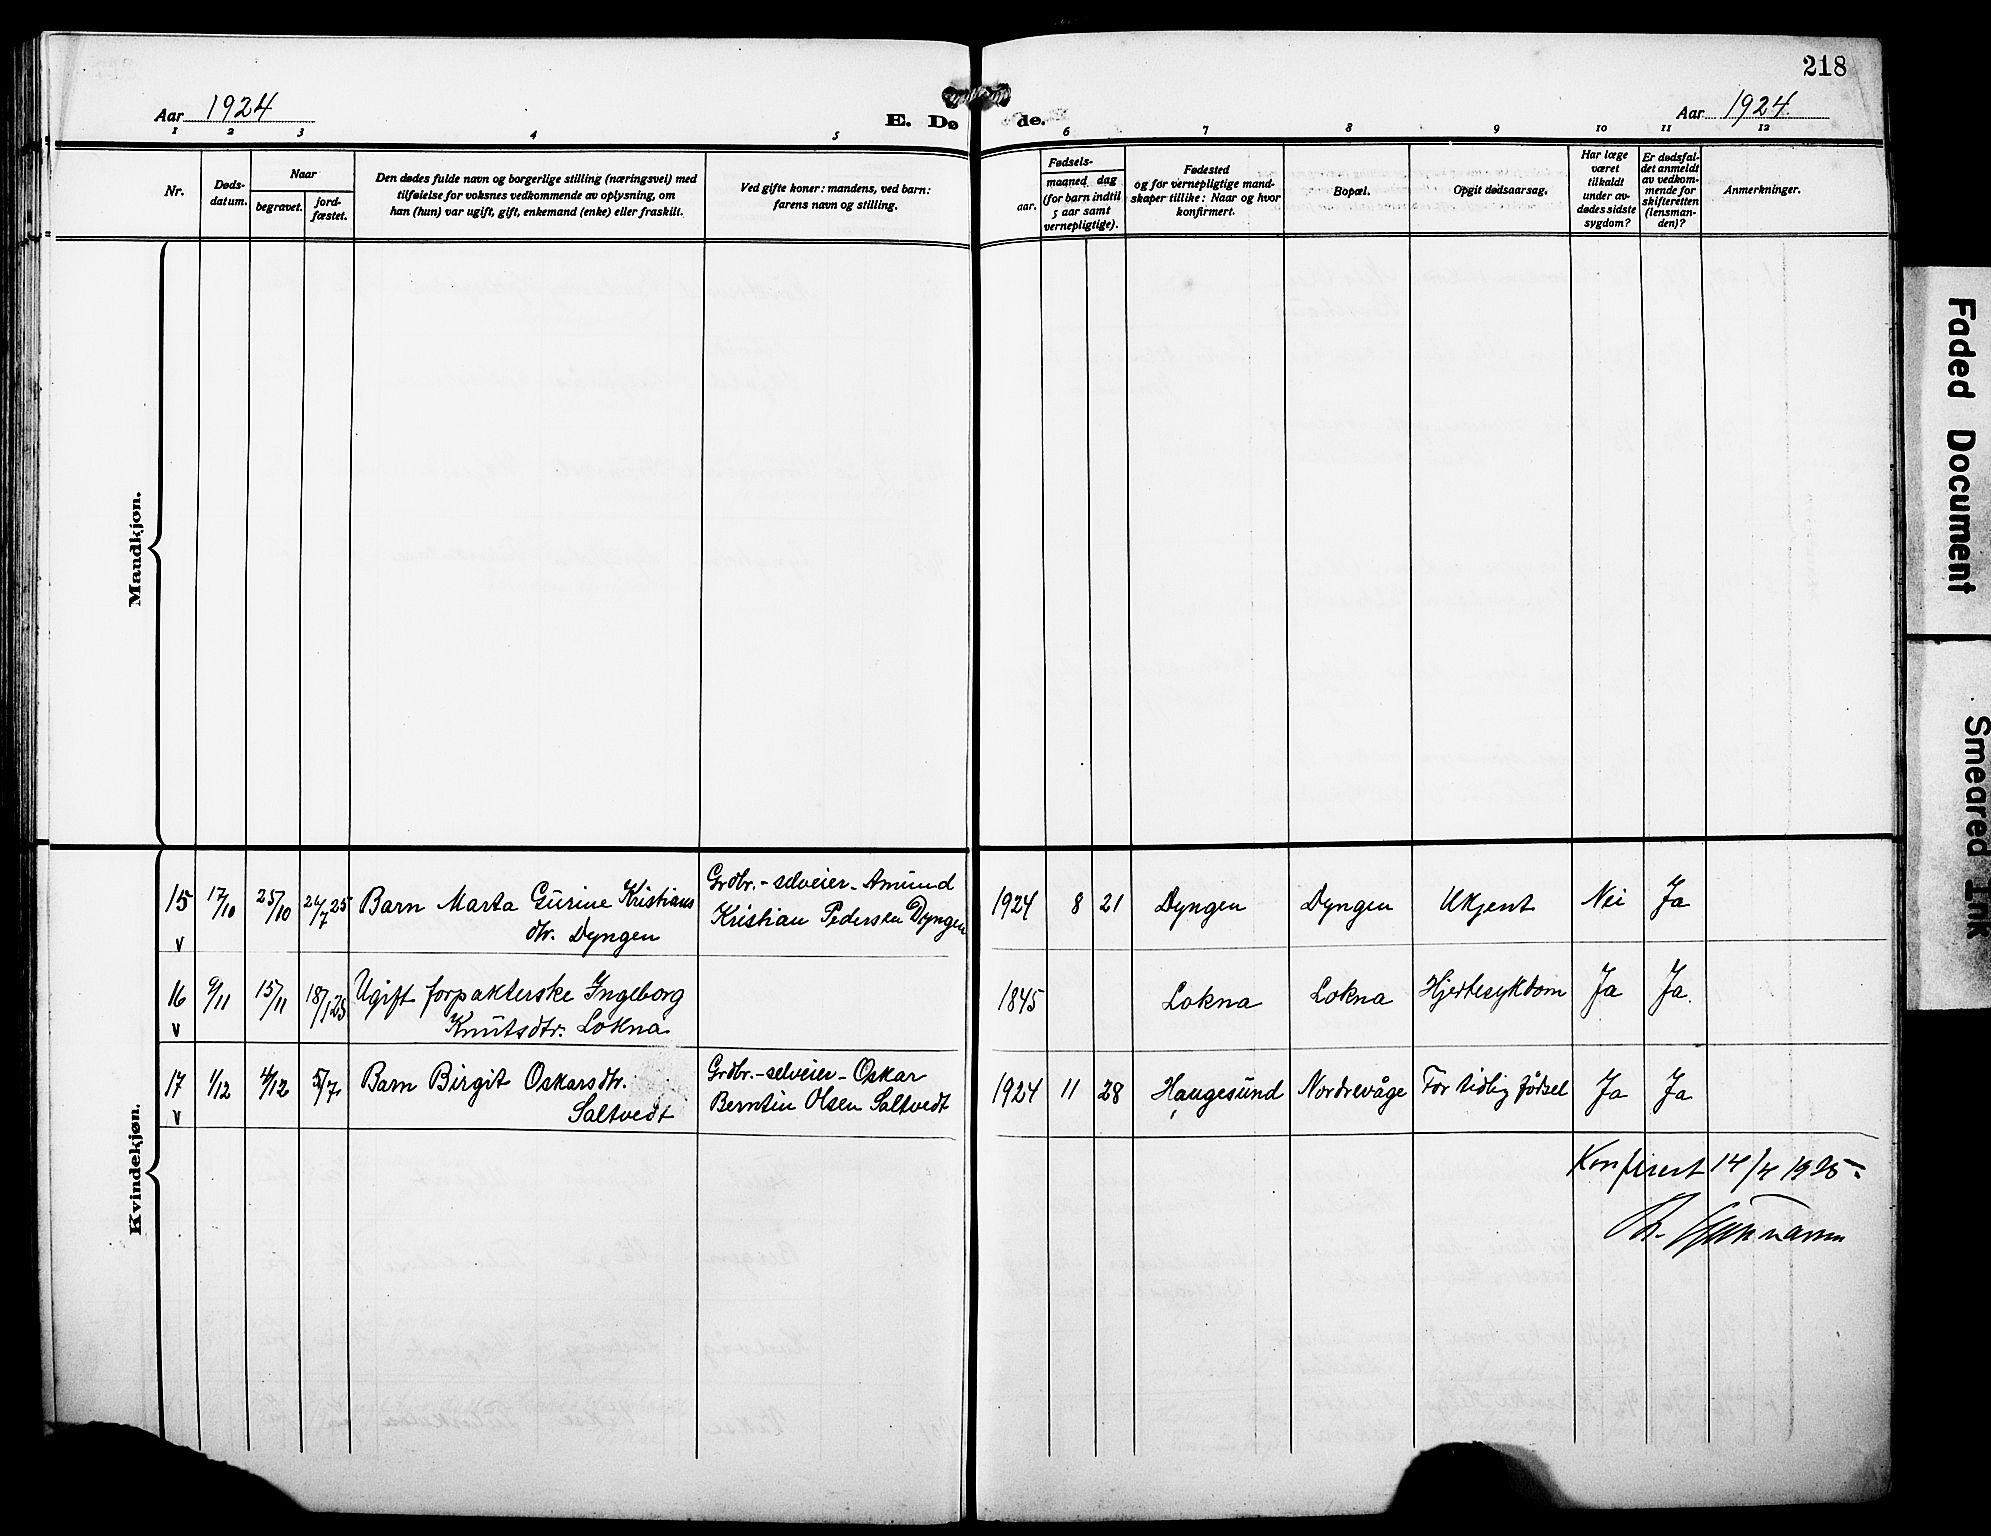 218
Aar 1924
Aar 1924.
E. Dø de.
1 2 3 4 5 6 7 8 9 10 11 12
Nr.
Døds-
datum.
Naar
begravet.
jord-
fæstet.
Den dødes fulde navn og borgerlige stilling (næringsvei) med
tilføielse for voksnes vedkommende av oplysning, om
han (hun) var ugift, gift, enkemand (enke) eller fraskilt.
Ved gifte koner: mandens, ved barn:
farens navn og stilling.
Fødsels-
aar.
maaned dag
(for barn indtil
5 aar samt
vernepligtige).
Fødested
og for vernepligtige mand-
skaper tillike: Naar og hvor
konfirmert.
Bopæl.
Opgit dødsaarsag.
Har læge
været
tilkaldt
under av-
dødes sidste
sygdom?
Er dødsfal-
det anmeldt
av vedkom-
mende for
skifteretten
(lensman-
den)?
Anmerkninger.
Mandkjøn.
Kvindekjøn.
15 17/10 25/10 26/7 25 Barn Marta Gurine Kristians Grdbr.-selveier-Amund
dtr. Dyngen Kristian Pedersen Dyngen 1924 8 21 Dyngen Dyngen Ukjent Nei Ja
v
16 9/11 15/11 18/1 25 Ugift forpakterske Ingeborg 1845 Lokna Lokna Hjertesykdom Ja Ja.
v Knutsdtr. Lokna
17 1/12 4/12 5/7 Barn Birgit Oskarsdtr. Grdbr.-selveier-Oskar
v Saltvedt Berntin Olsen Saltvedt 1924 11 28 Haugesund Nordrevåge For tidlig fødsel Ja Ja
Konferert 14/4 1925
Faded Document
Smeared Ink